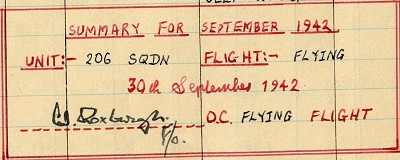 SUMMARY FOR SEPTEMBER 1942
UNIT:- 206 SQDN FLIGHT:- FLYING
30th September 1942
Roxburgh. F/O. O.C. FLYING FLIGHT